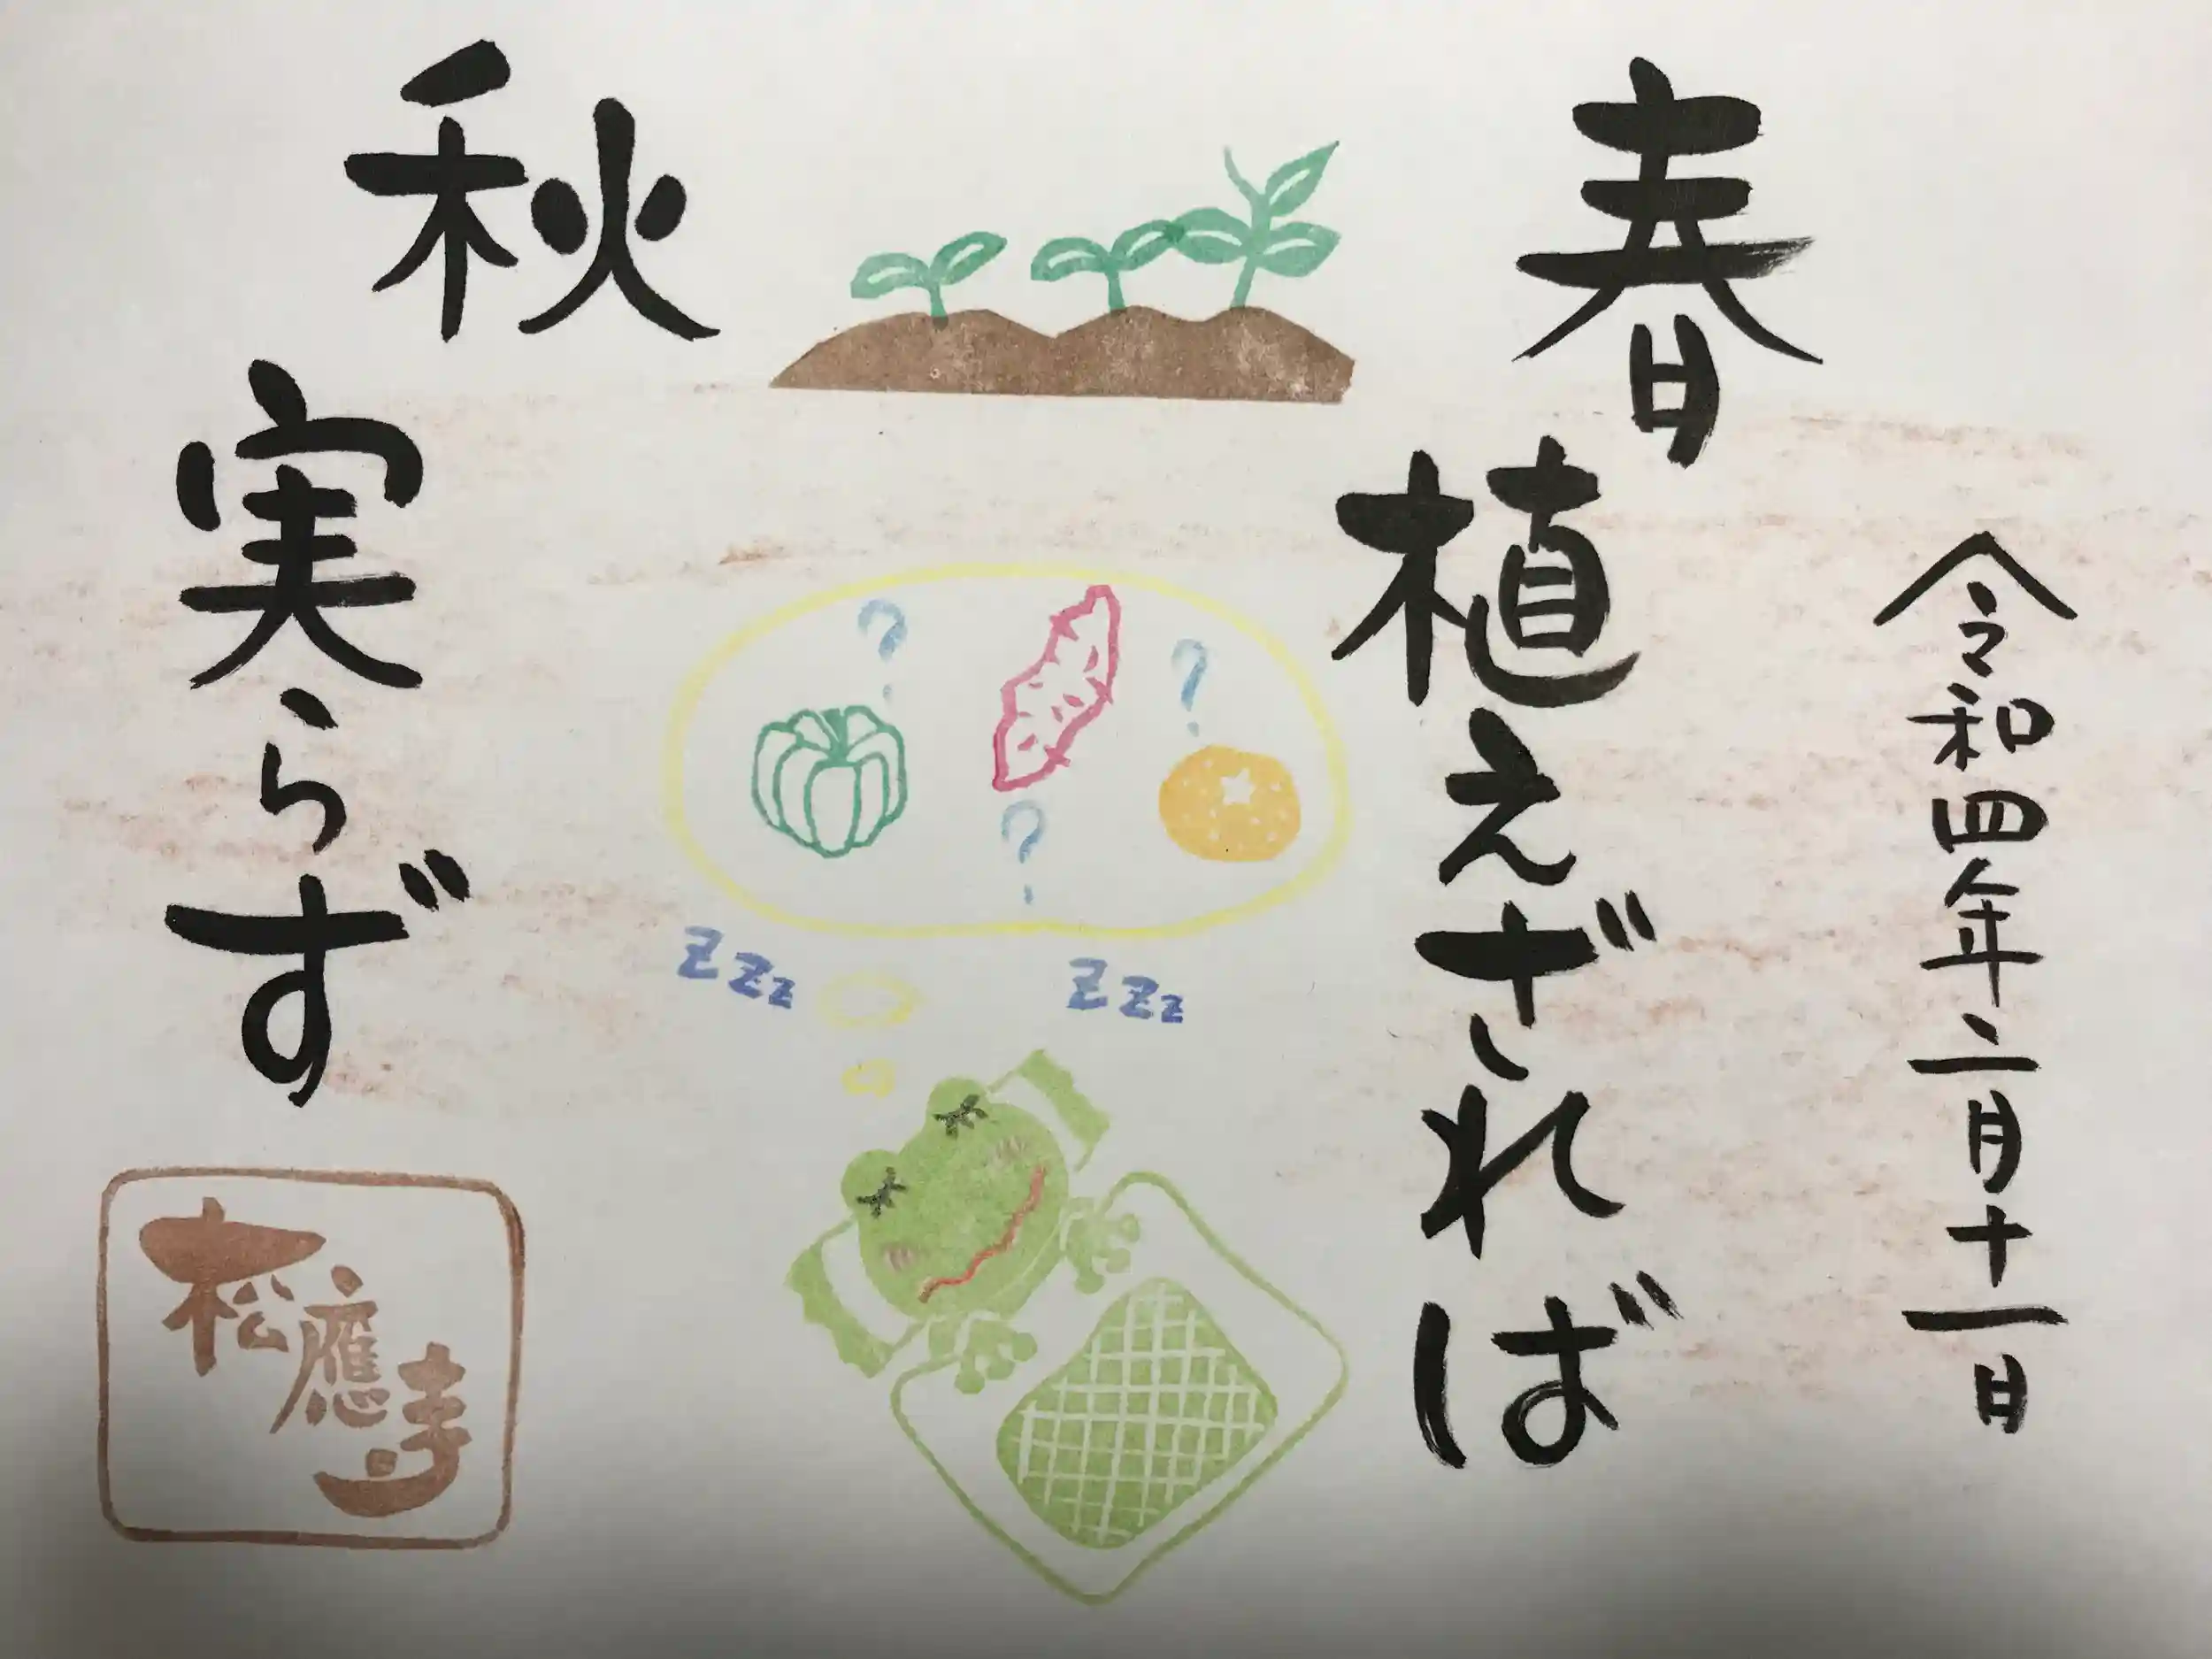 令和四年二月十一日
春
植えざれば
秋
実らず
? ? ?
ZZz ZZz
松應寺